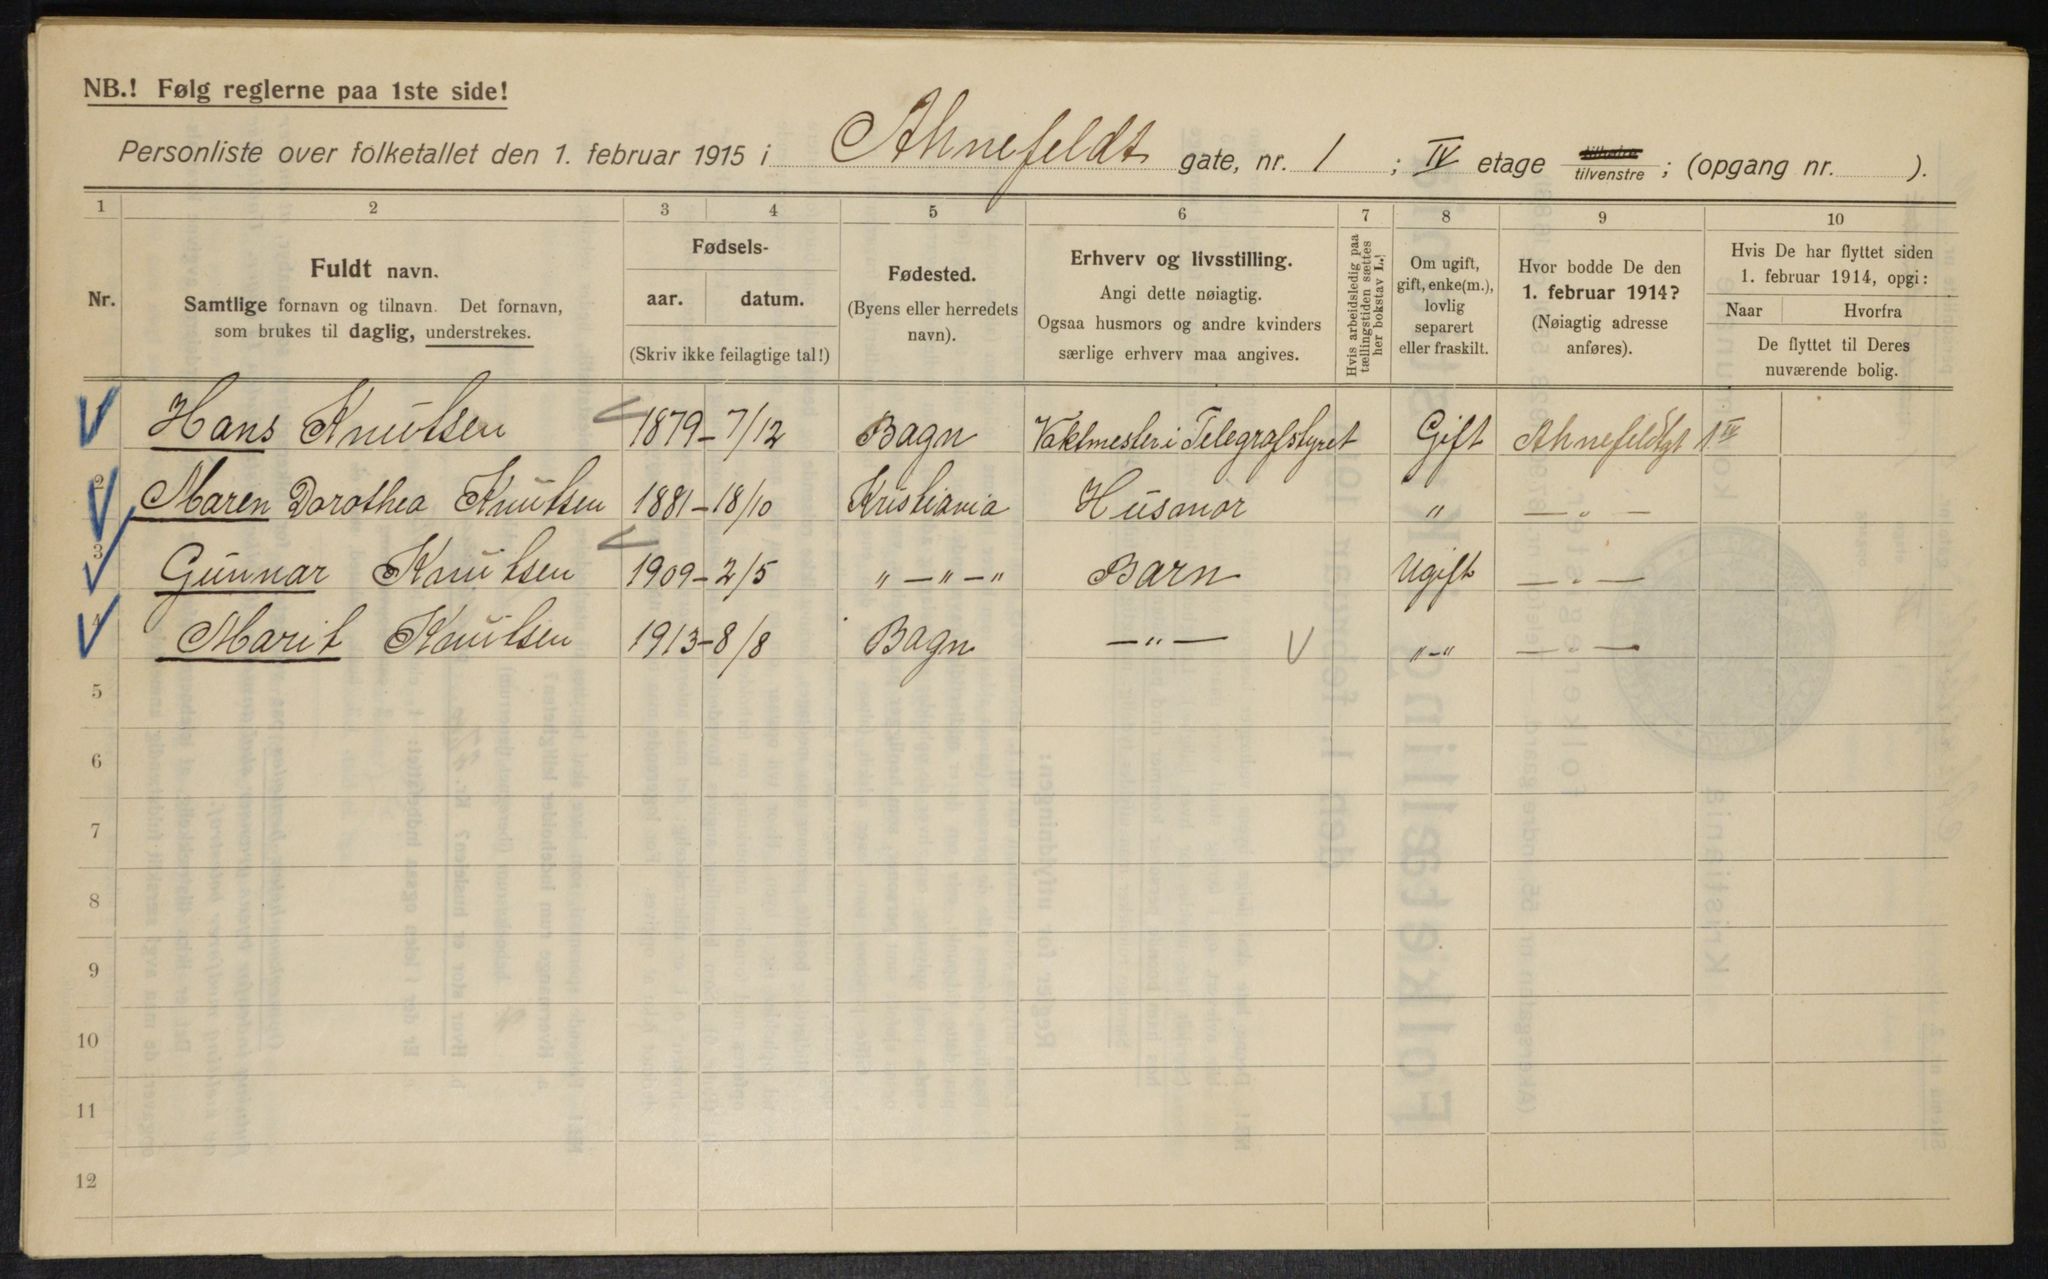 NB.! Følg reglerne paa 1ste side!
Personliste over folketallet den 1. februar 1915 i Ahnefeldt gate, nr. 1 ; IV etage tilvenstre ; (opgang nr. ).
1 2 3 4 5 6 7 8 9 10
Nr.
Fuldt navn.
Samtlige fornavn og tilnavn. Det fornavn,
som brukes til daglig, understrekes.
Fødsels-
aar. datum.
(Skriv ikke feilagtige tal!)
Fødested.
(Byens eller herredets
navn).
Erhverv og livsstilling.
Angi dette nøiagtig.
Ogsaa husmors og andre kvinders
særlige erhverv maa angives.
Hvis arbeidsledig paa
tællingstiden sættes
her bokstav L.
Om ugift,
gift, enke(m.),
lovlig
separert
eller fraskilt.
Hvor bodde De den
1. februar 1914?
(Nøiagtig adresse
anføres).
Hvis De har flyttet siden
1. februar 1914, opgi:
Naar Hvorfra
De flyttet til Deres
nuværende bolig.
Hans Knutsen 1879 - 7/12 Bagn Vaktmester i Telegrafstyret Gift Ahnefeldtgt 1 IV
2 Maren Dorothea Knutsen 1881 - 18/10 Kristiania Husmor " — " —
3 Gunnar Knutsen 1909 - 2/5 " — " — " Barn Ugift — " —
4 Marit Knutsen 1913 - 8/8 Bagn — " — " — " — " —
5
6
7
8
9
10
11
12